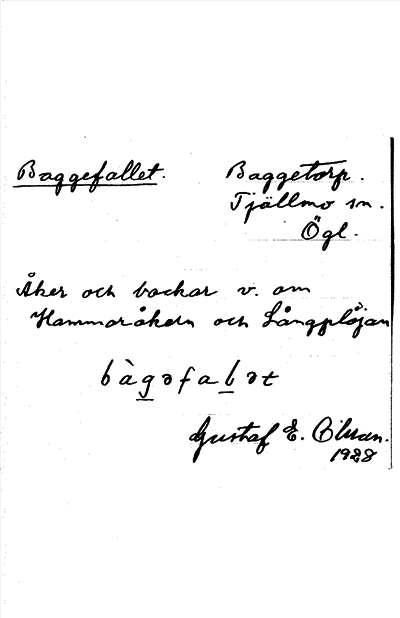 Baggefallet. Baggetorp.
Tjällmo sn.
Ögl.
Åker och backar v. om
Hammaråkern och Långplöjan
bàgəfaḷət
Gustaf E.
1928